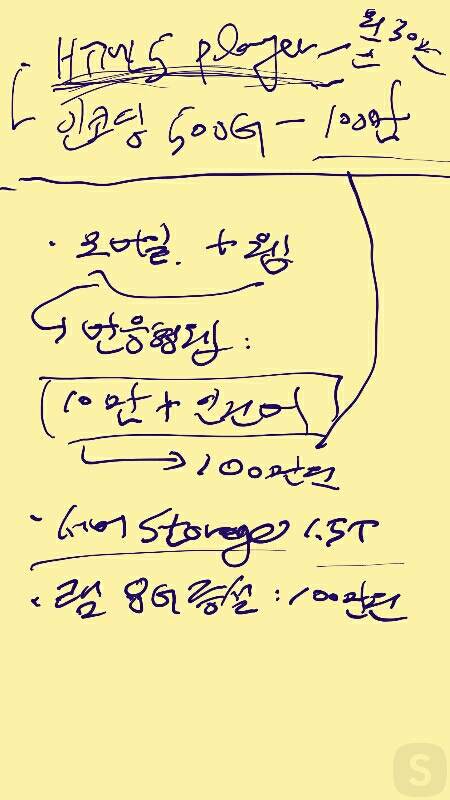 HTML5 player - 월 30만
인코딩 500G - 100만
· 모바일 + 웹
반응형웹 :
10만 +
→ 100만원
· 서버 Storage 1.5T
· 램 8G 증설 : 100만원
S